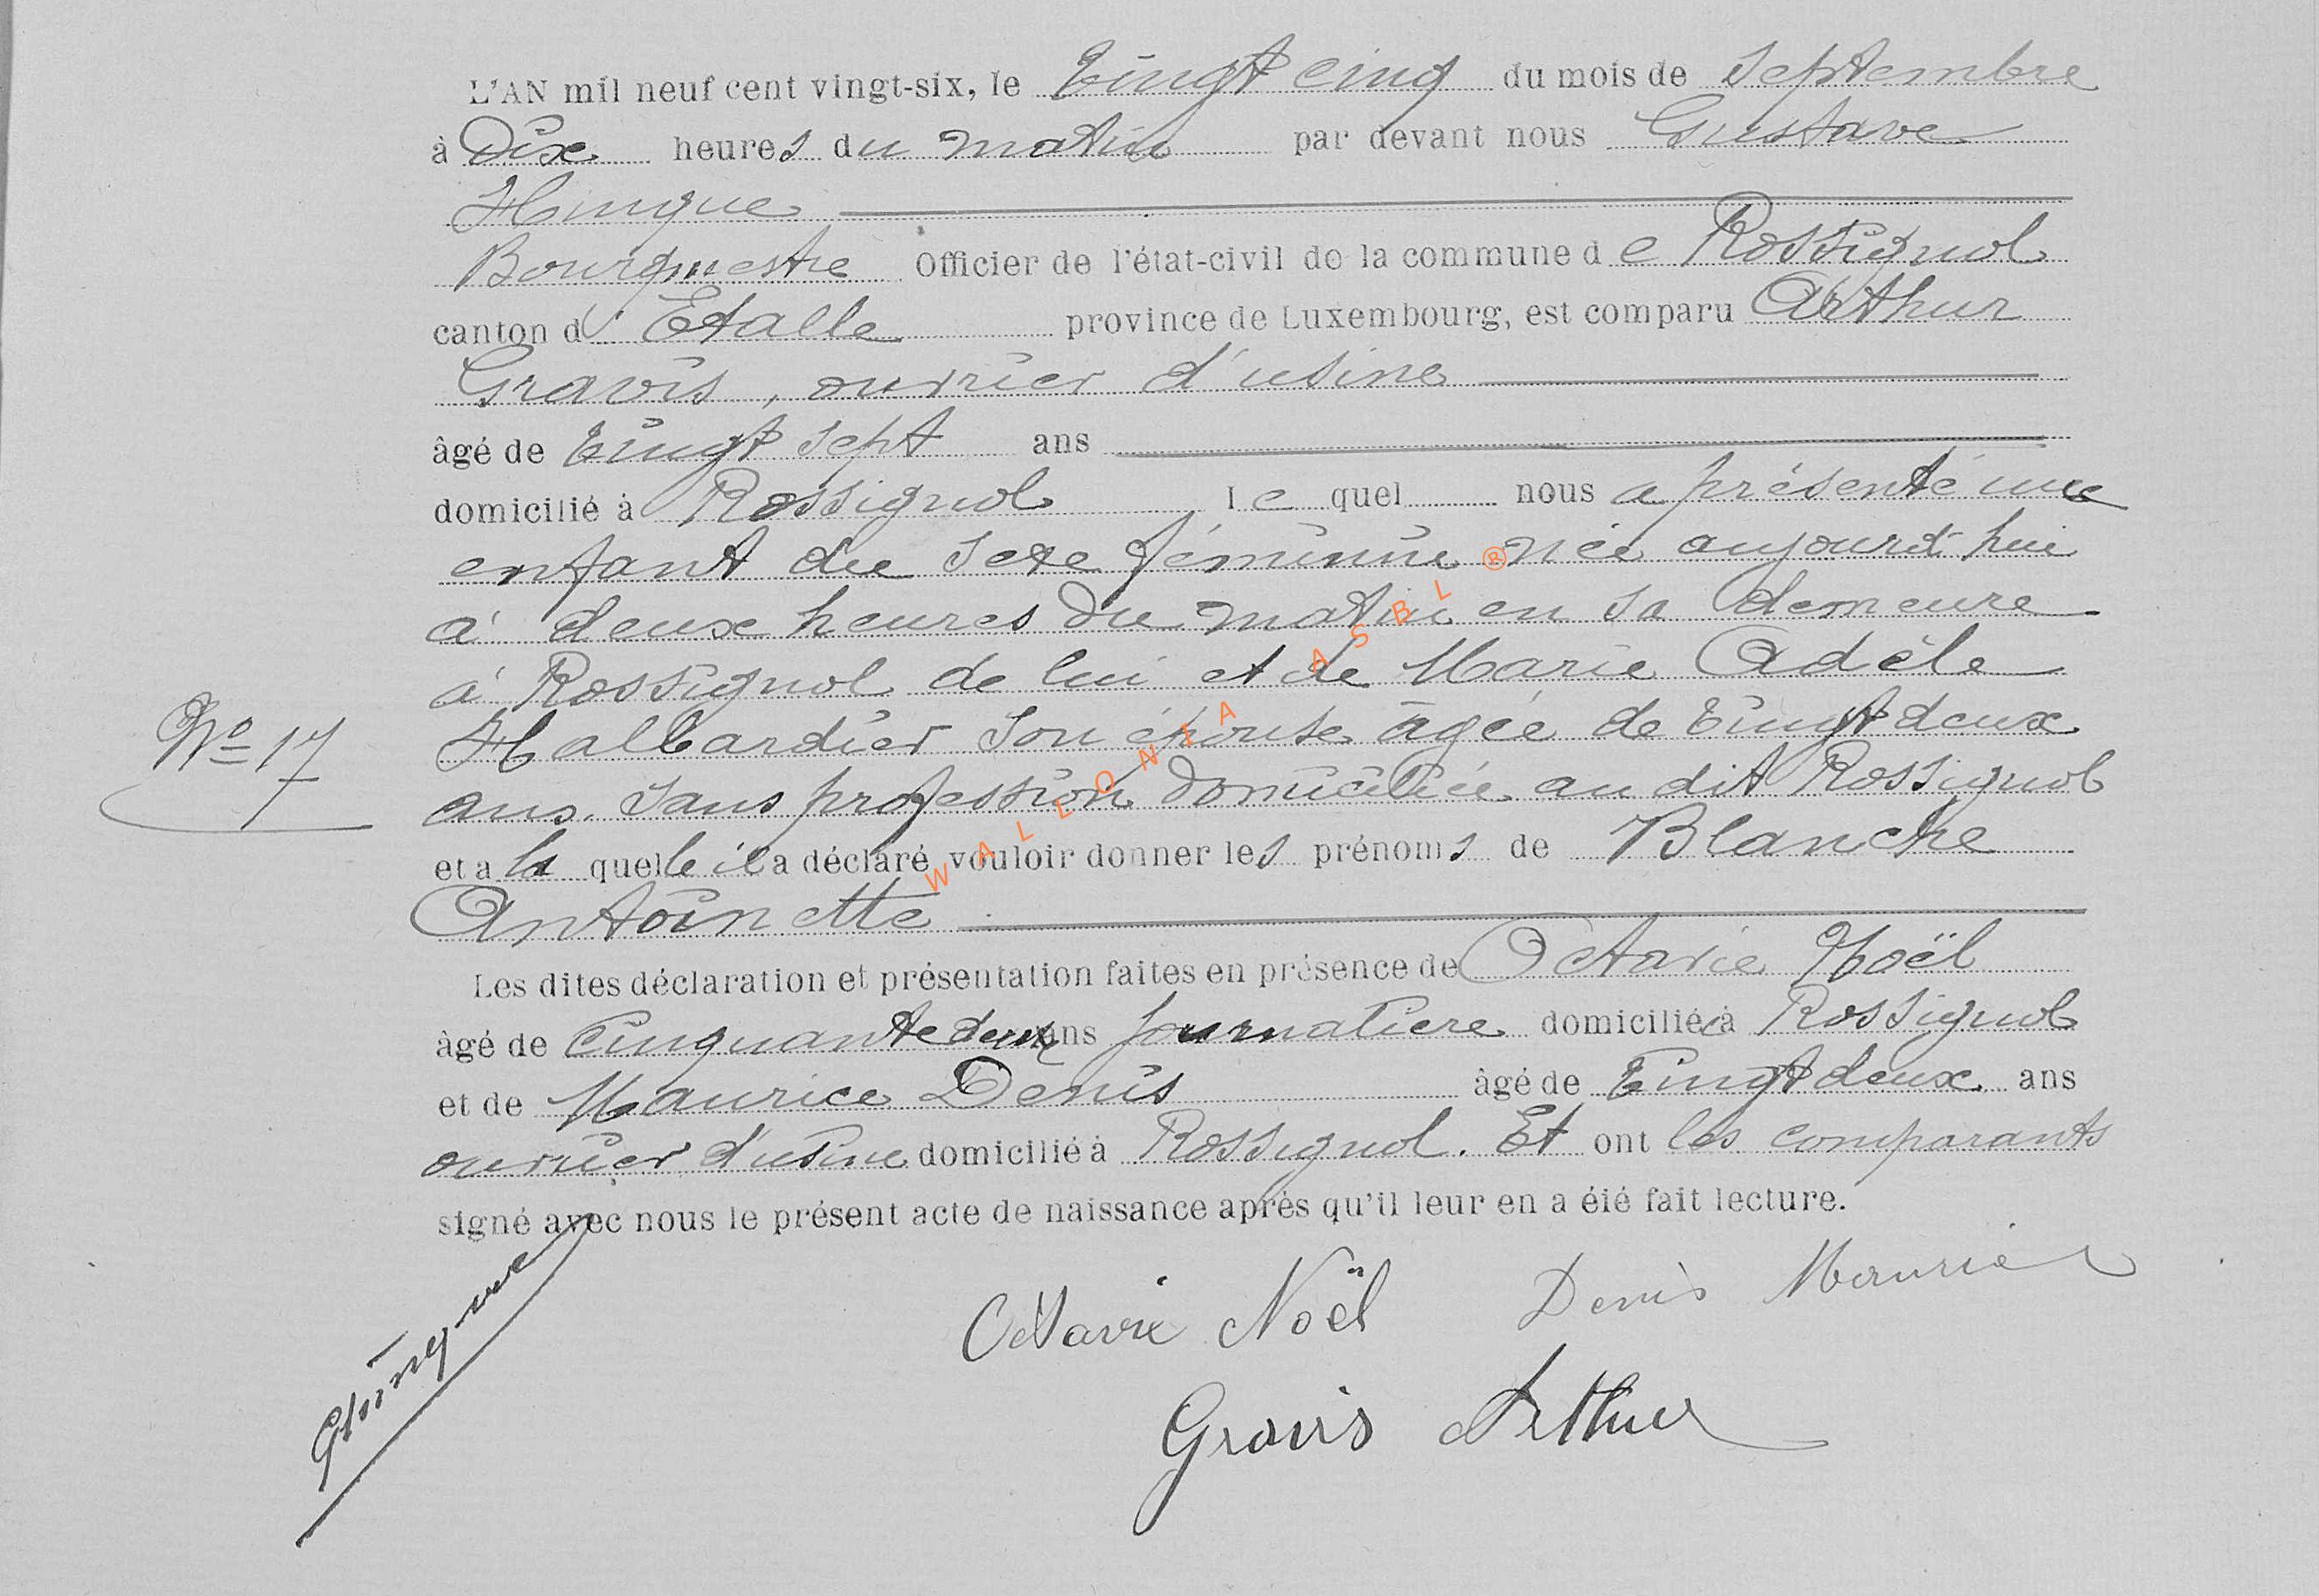 L'AN mil neuf cent vingt-six, le Vingt cinq du mois de Septembre
à Dix heures du matin par devant nous Gustave
Hinque
Bourgmestre Officier de l'état-civil de la commune de Rossignol
canton d'Etalle province de Luxembourg, est comparu Arthur
Gravis, ouvrier d'usine
âgé de Vingt sept ans
domicilié à Rossignol lequel nous a présenté une
enfant du sexe féminin née aujourd'hui
à deux heures du matin en sa demeure
à Rossignol de lui et de Marie Adèle
N° 17 Hallbardier son épouse âgée de Vingt deux
ans. sans profession domiciliée au dit Rossignol
et a laquelle il a déclaré vouloir donner les prénoms de Blanche
Antoinette
Les dites déclaration et présentation faites en présence de Octavie Noël
âgé de Cinquante deux ans journalière domiciliée à Rossignol
et de Maurice Denis âgé de Vingt deux ans
ouvrier d'usine domicilié à Rossignol. Et ont les comparants
signé avec nous le présent acte de naissance après qu'il leur en a été fait lecture.
Octavie Noël Denis Maurice
GHinque
Gravis Arthur
WALLONIA ASBL ®